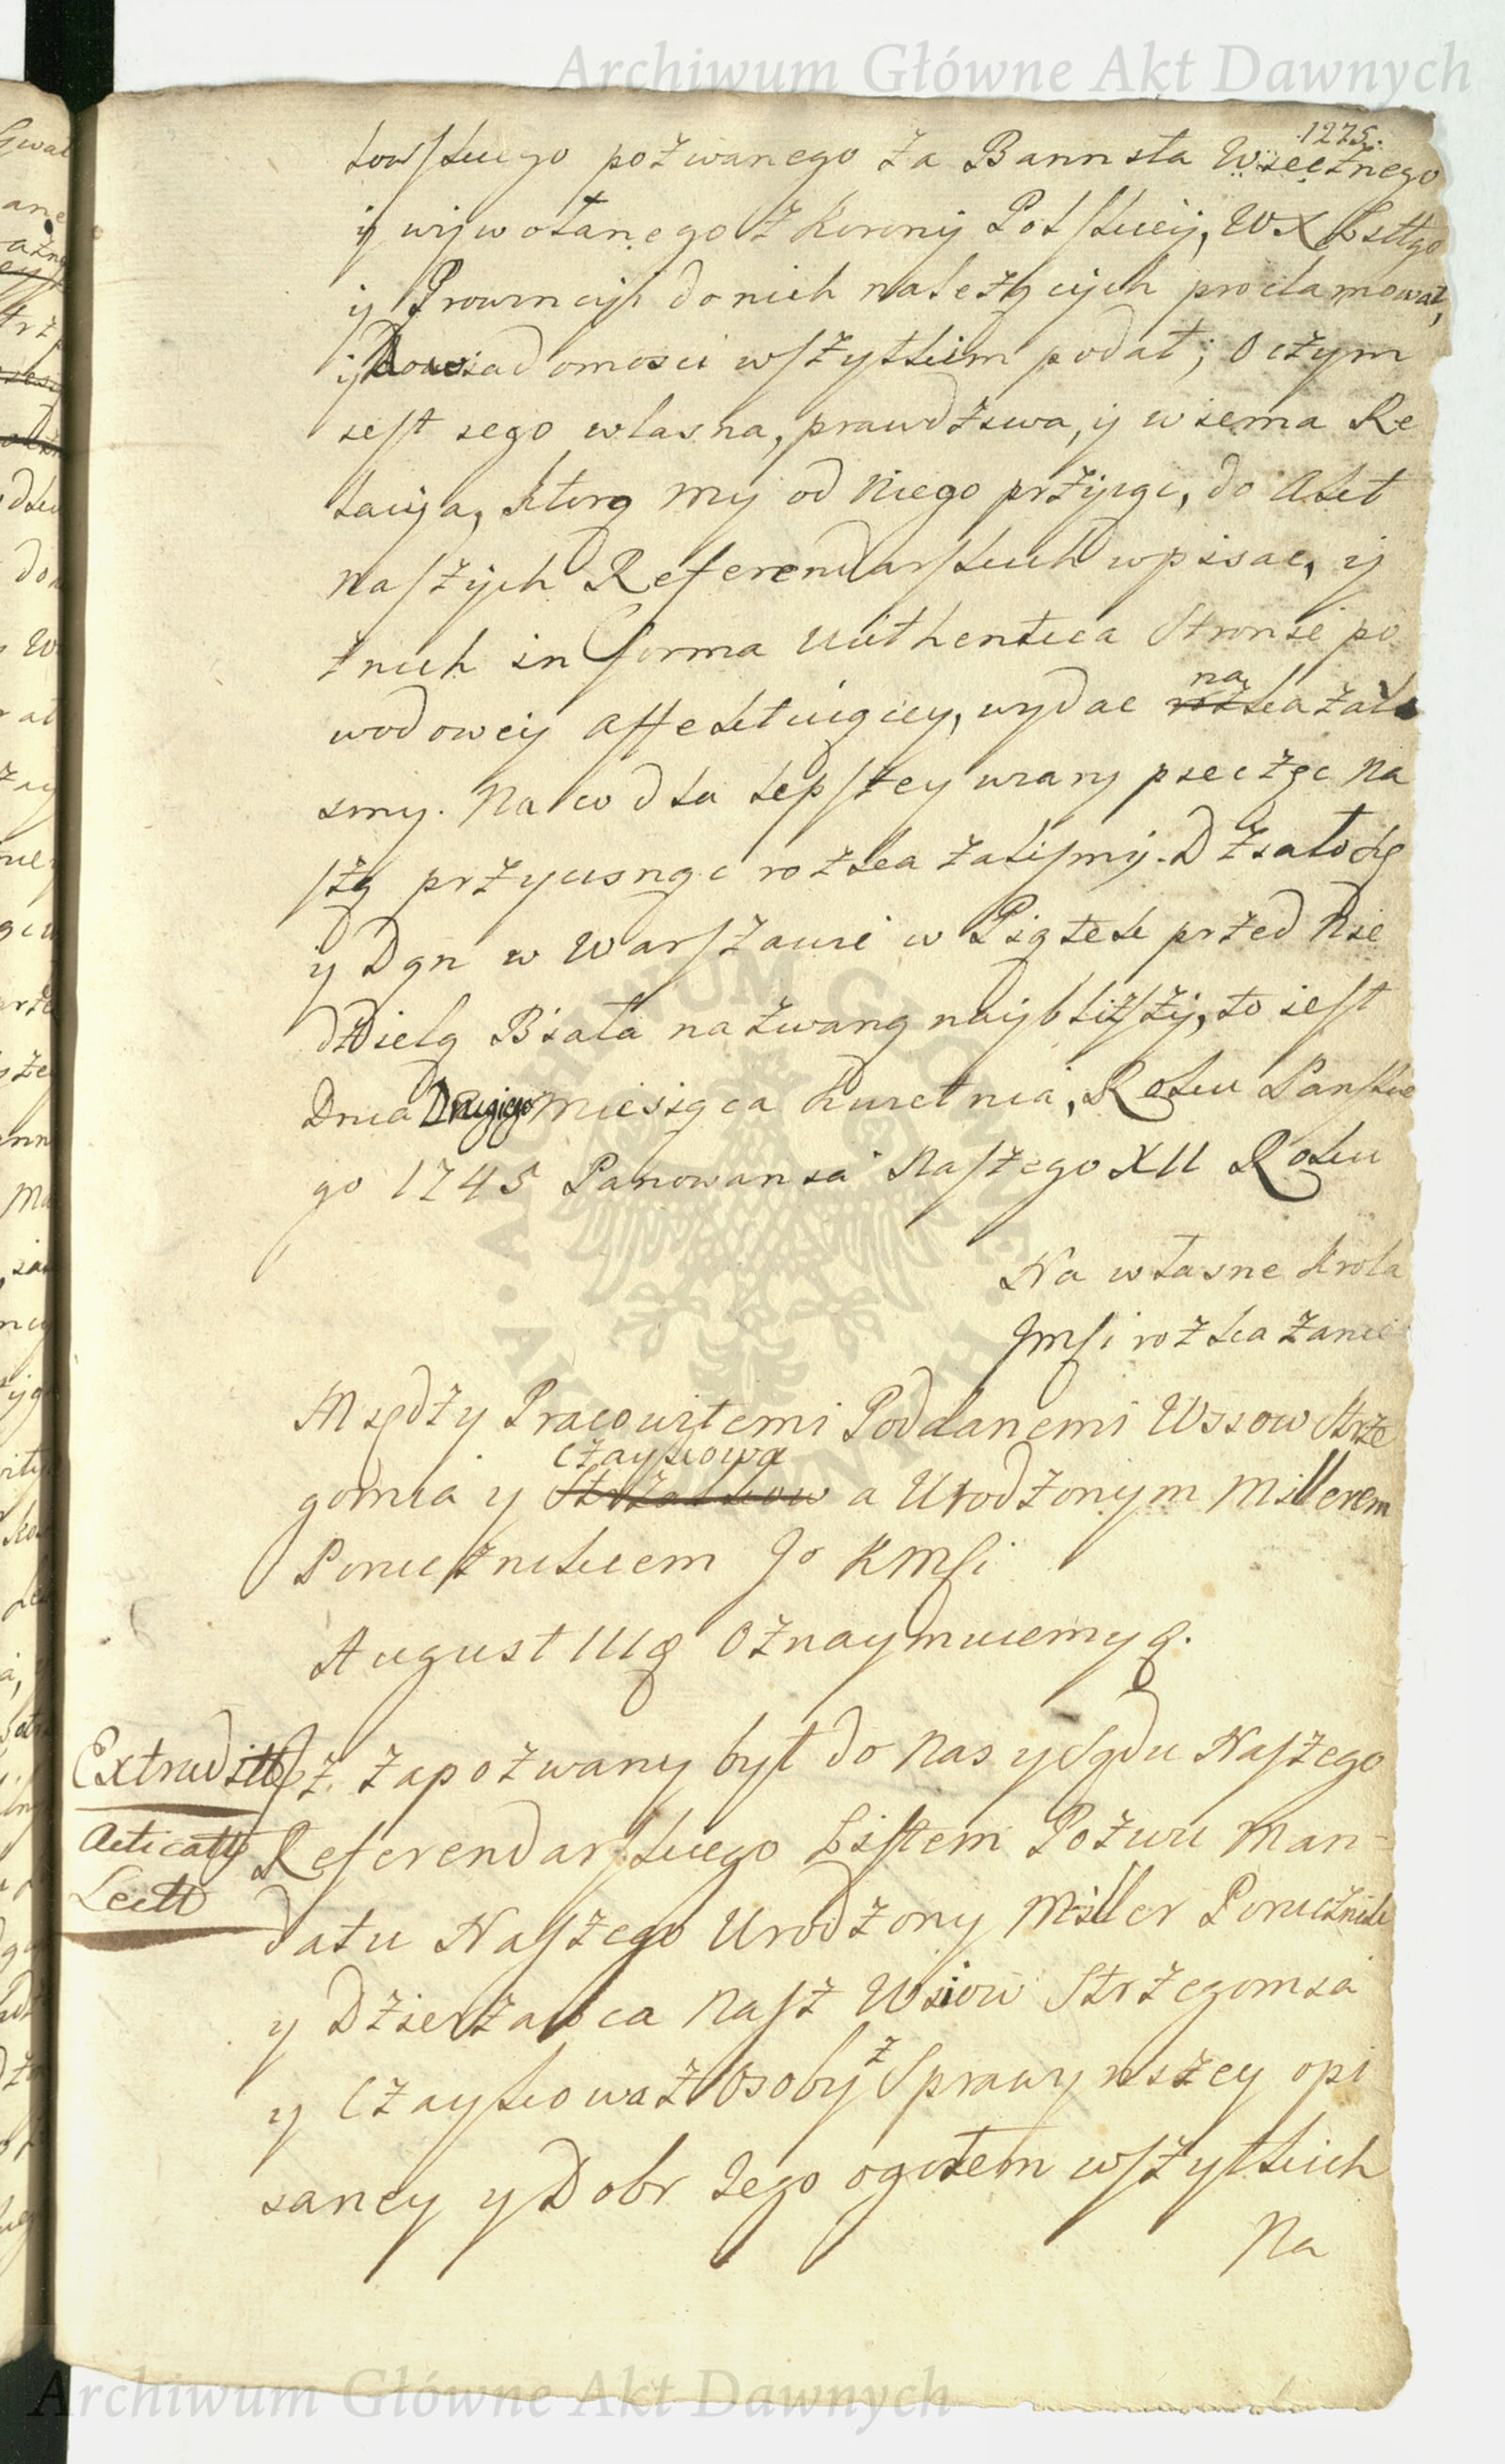 Archiwum Główne Akt Dawnych
1275.
towskiego pozwanego za Bannita Wiecznego
y wywołanego z Korony Polskiey, WX Littgo
y Prowincyi do nich należących proclamował,
y Dowiadomosci wszytkim podał; O czym
iest iego własna, prawdziwa, y wierna Re
lacyja, ktorą my od niego przyiąc, do Akt
Naszych Referendarskich wpisac, y
z nich in forma Authentica Stronie po
wodowey affektuiącey, wydac na
kazali
smy. Na co dla lepszey wiary pieczęc Na
szą przycisnąc rozkazalismy. Działo się
y Dan w Warszawie w Piątek przed Nie
dzielą Biała nazwaną naybliższy, to iest
Dnia Drugiego Miesiąca Kwietnia, Roku Panskie
go 1745 Panowania Naszego XII Roku
Na własne Krola
Jmsci rozkazanie
Między Pracowitemi Poddanemi Wsiow Strze
Czaykowa
gomia y Strzałkow a Urodzonym Millerem
Porucznikiem Jo KMsci
August III Oznaymuiemy
Extradit
Acticatt
Lectt
Jż zapozwany był do Nas y Sądu Naszego
Referendarskiego Listem Pozwu Man-
datu Naszego Urodzony Miller Porucznik
y Dzierzawca Nasz Wsiow Strzegomia
y Czaykowa z Osoby z Sprawy niszey opi
saney y Dobr Jego ogołem wszytkich
Na
ARCHIWUM GŁÓWNE AKT DAWNYCH
Archiwum Główne Akt Dawnych